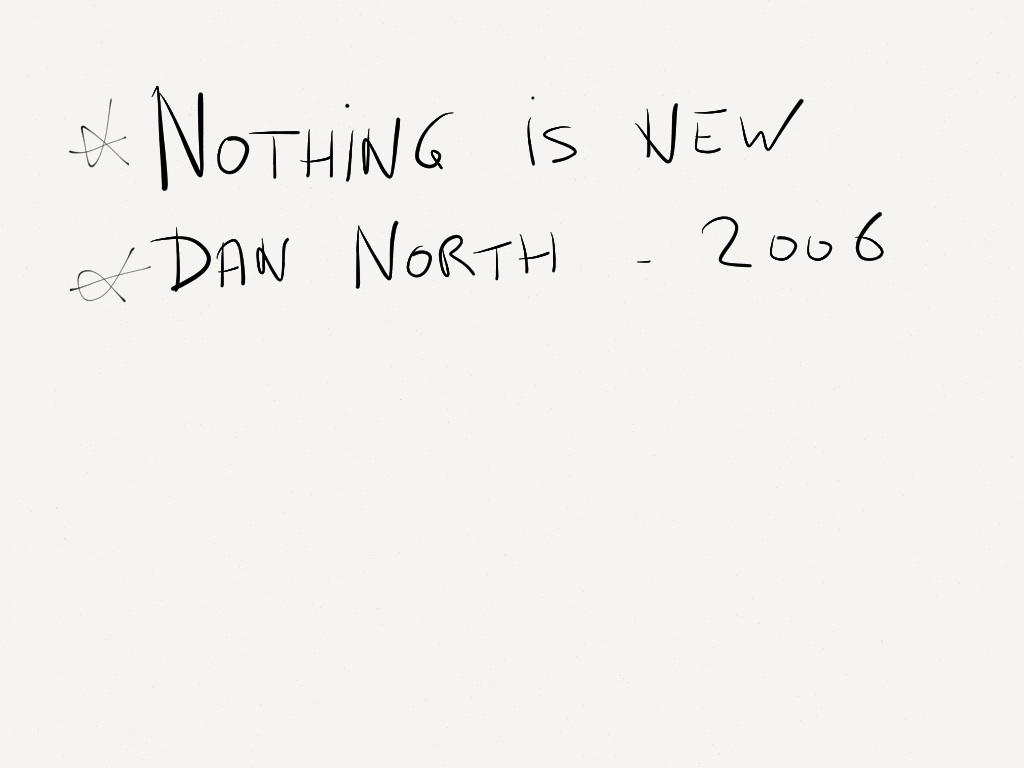 NOTHING IS NEW
DAN NORTH - 2006